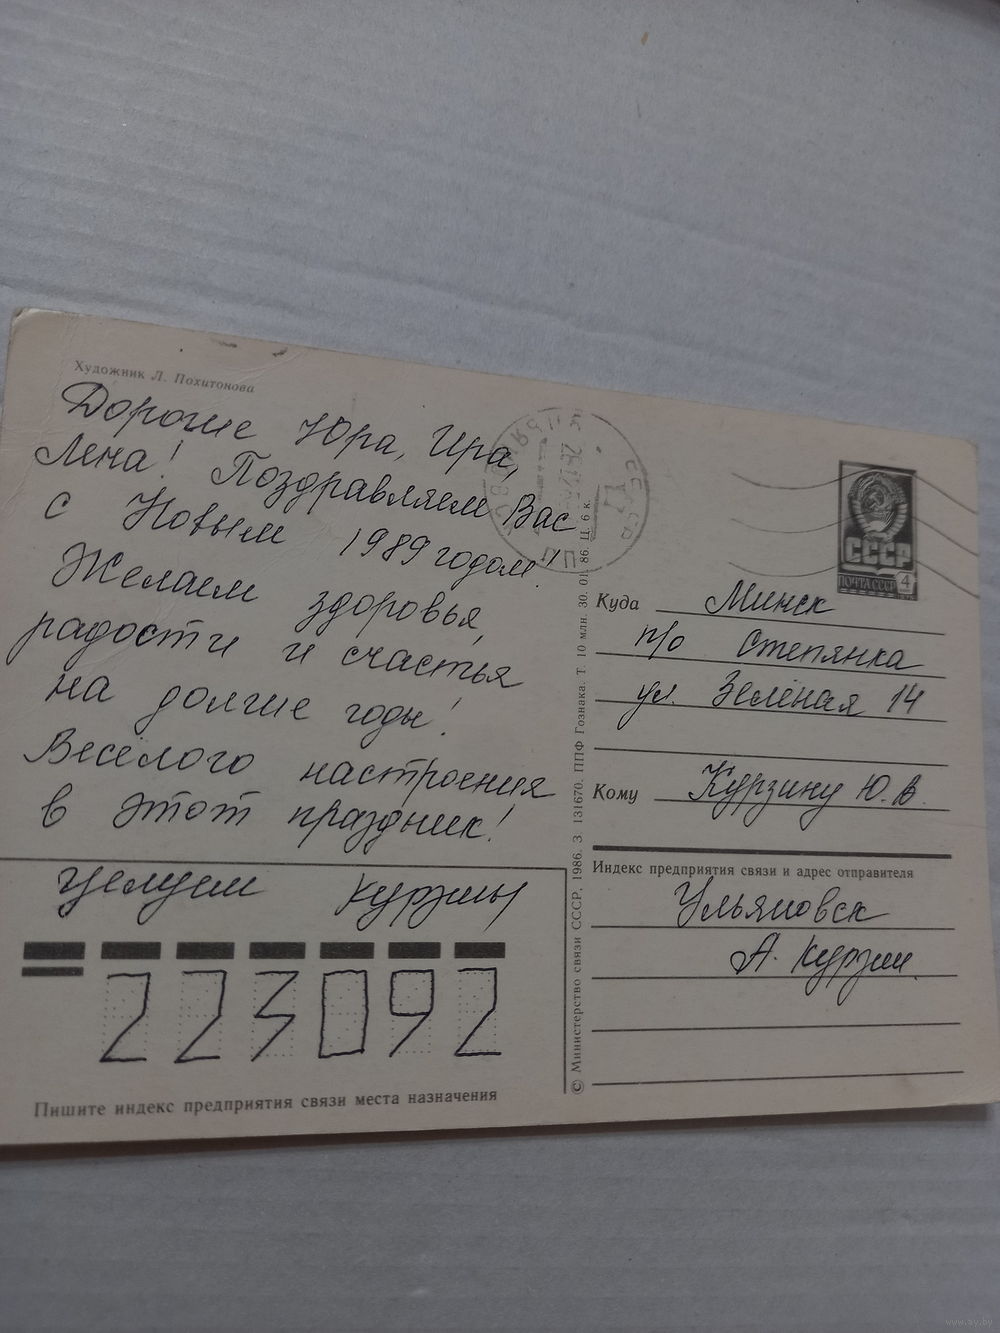 Художник Л. Похитонова
Дорогие Юра, Ира,
Лена! Поздравляем Вас
с Новым 1989 годом!!
Желаем здоровья,
радости и счастья
на долгие годы!
Весёлого настроения
в этот праздник!
Целуем Курзины
223092
Пишите индекс предприятия связи места назначения
© Министерство связи СССР, 1986. З. 131670. ППФ Гознака. Т. 10 млн. 30. 01. 86. Ц. 6 к.
СССР
ПОЧТА СССР 4
Куда Минск
п/о Степянка
ул. Зелёная 14
Кому Курзину Ю. В.
Индекс предприятия связи и адрес отправителя
Ульяновск
А. Курзин.
www.ay.by